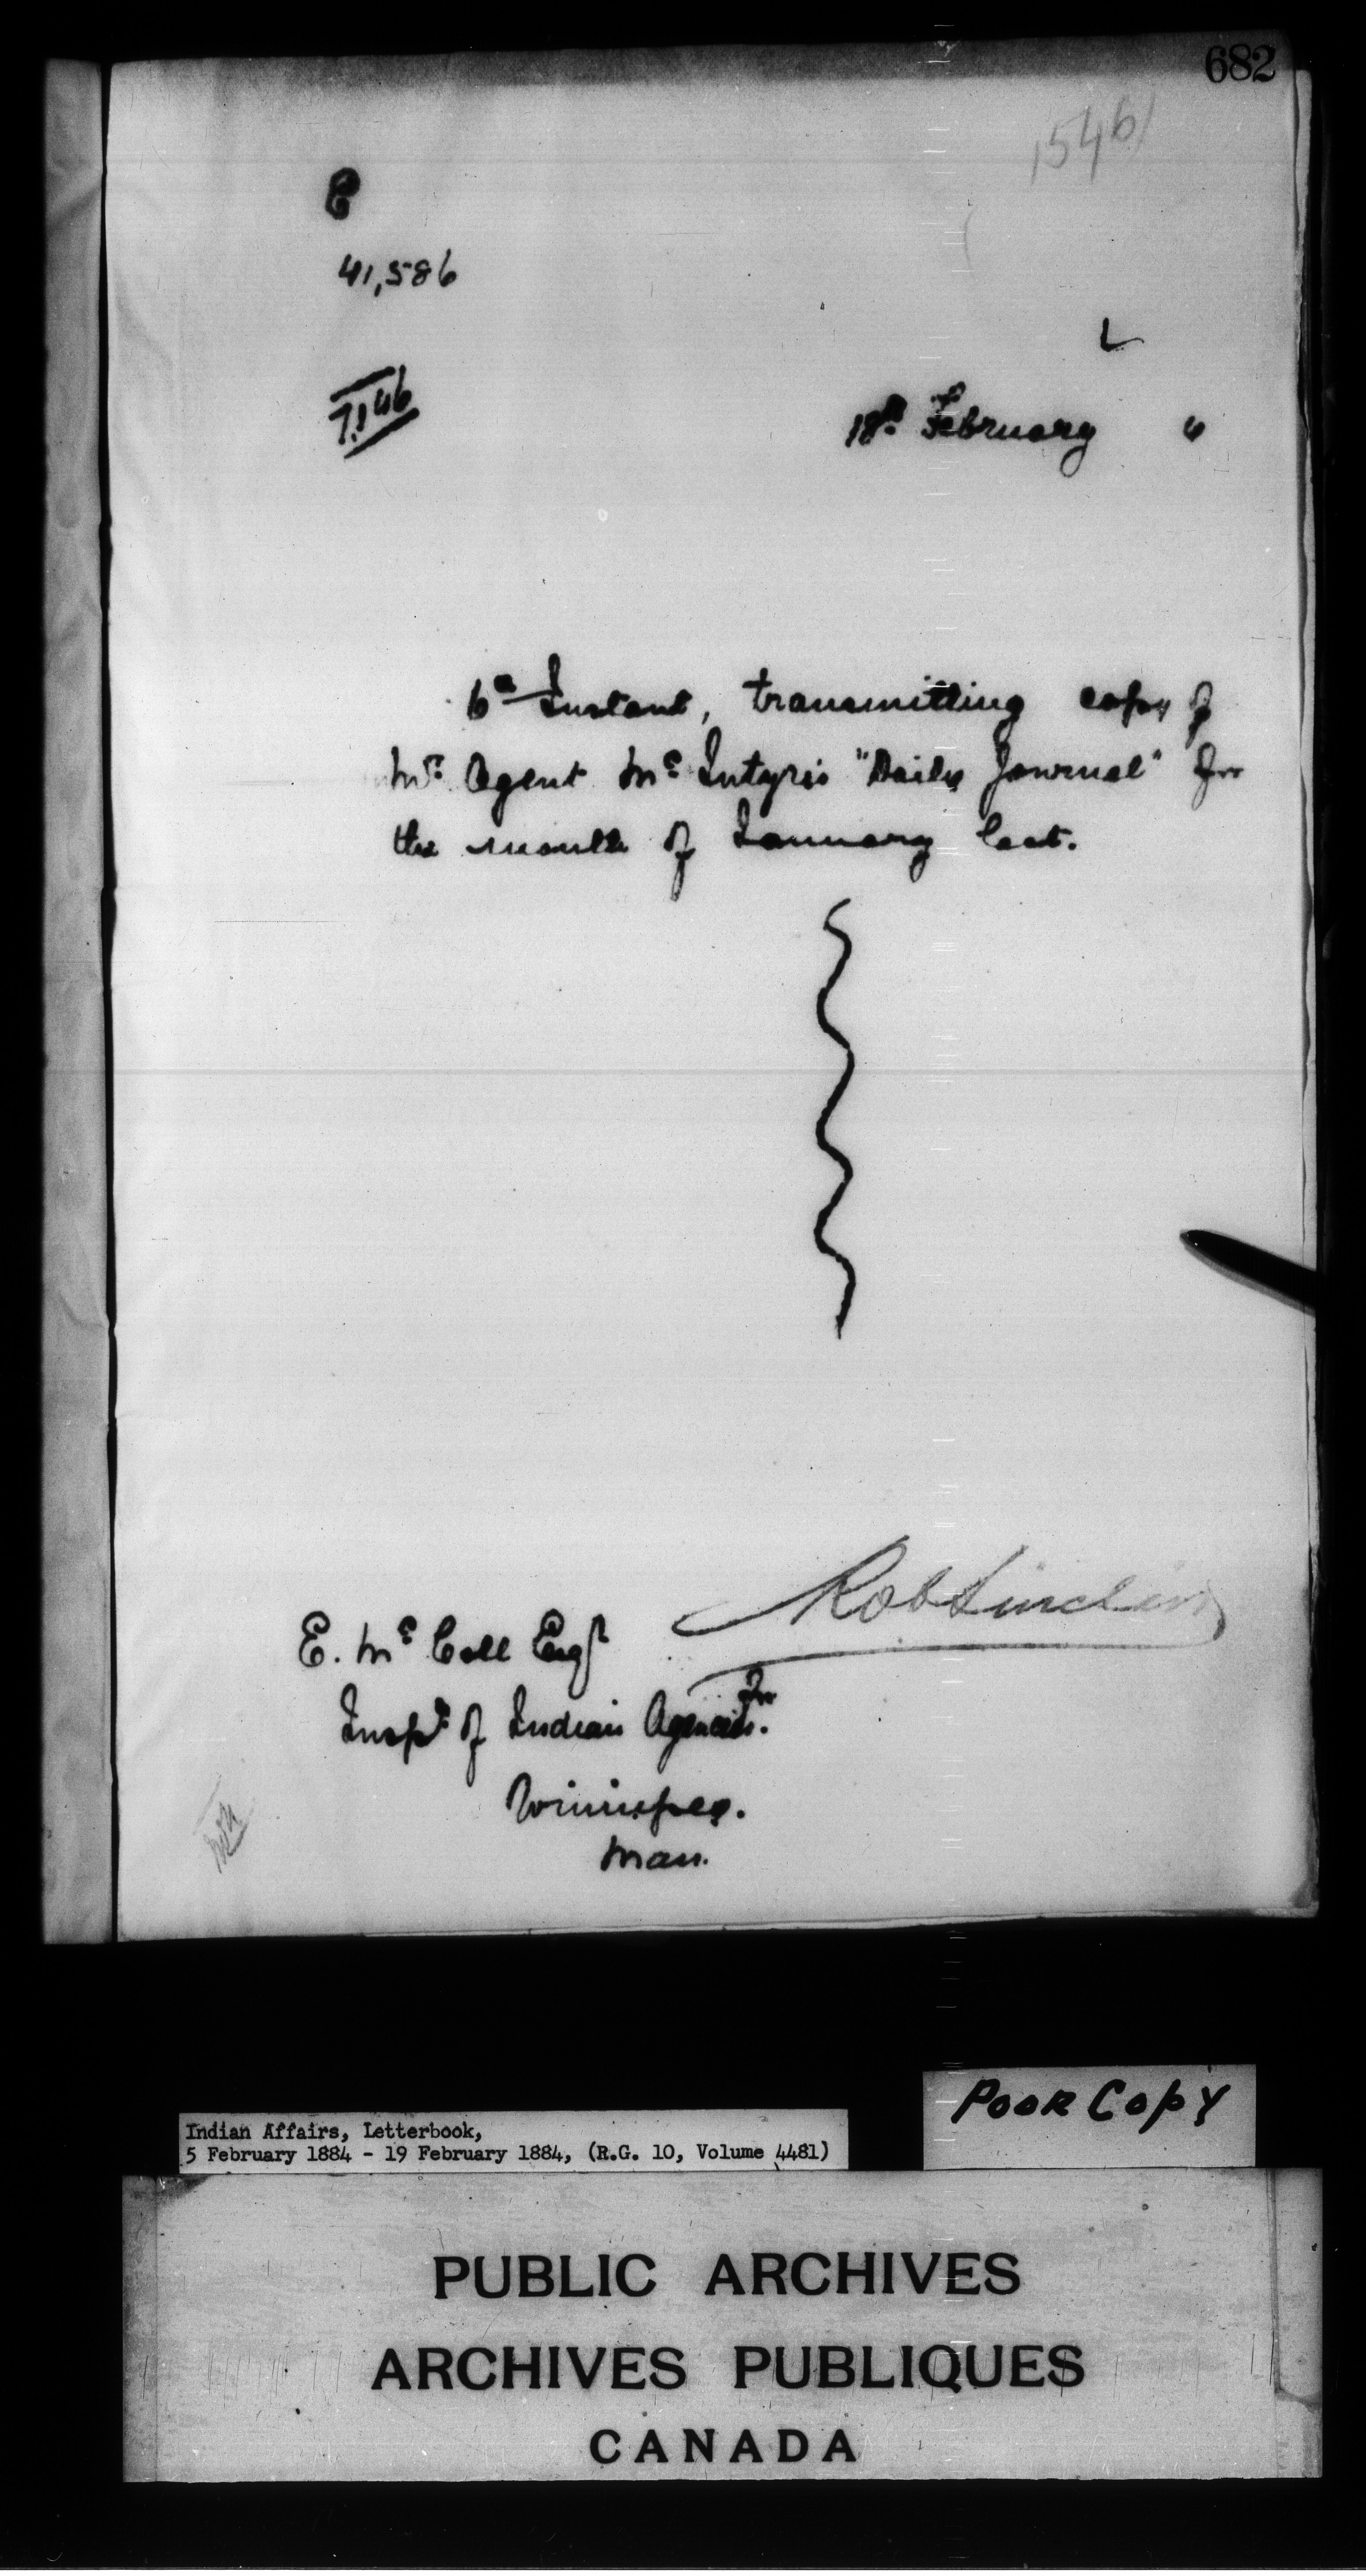 682
1546
41,586
18th February
6th Instant, transmitting copy of
Mr. Agent McIntyre's "Daily Journal" for
the month of January last.
Rob Sinclair
for
E. McColl Esqr
Inspr. of Indian Agencies.
Winnipeg.
Man.
Poor Copy
Indian Affairs, Letterbook,
5 February 1884 - 19 February 1884, (R.G. 10, Volume 4481)
PUBLIC ARCHIVES
ARCHIVES PUBLIQUES
CANADA